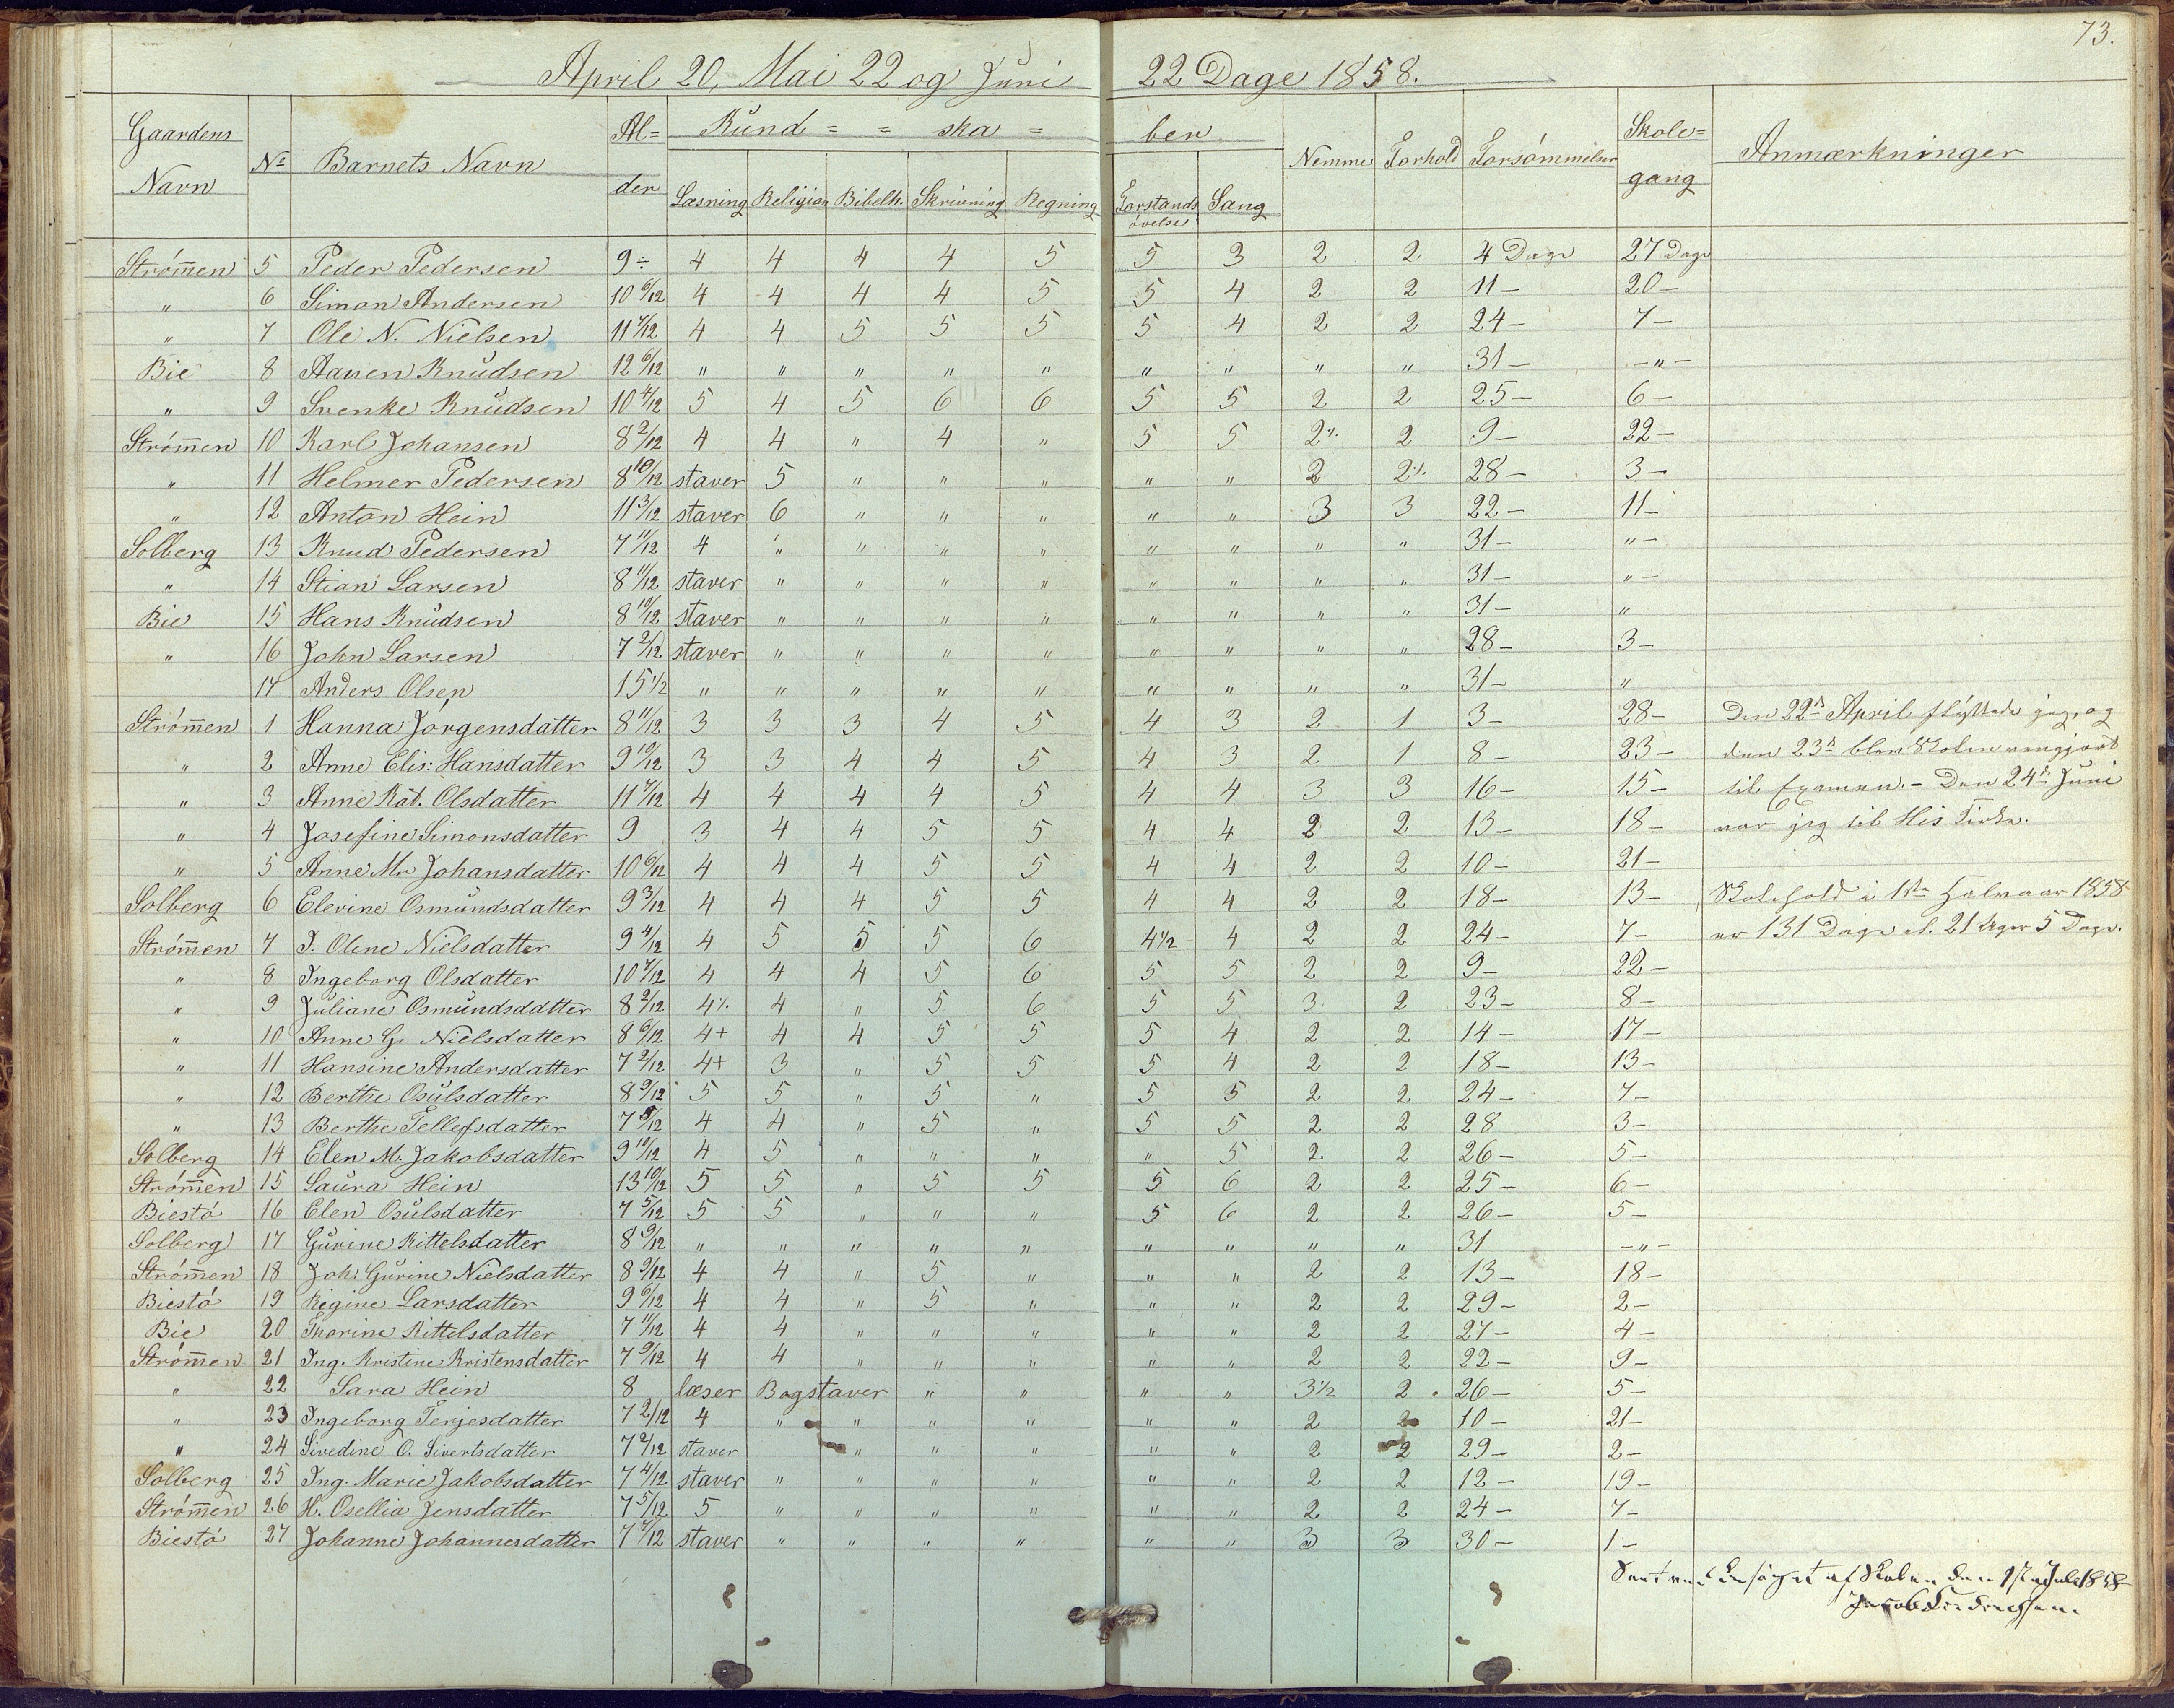 73.
April 20, Mai 22 og Juni 22 Dage 1858.
Gaardens Navn | No | Barnets Navn | Al=der | Kund= = ska = ber | Nemme | Forhold | Forsømmelser | Skole=gang | Anmærkninger
Læsning | Religion | Bibelh. | Skrivning | Regning | Forstands øvelse | Sang
Strømmen 5 Peder Pedersen 9÷ 4 4 4 4 5 5 3 2 2 4 Dage 27 Dage
" 6 Simon Andersen 10 6/12 4 4 4 4 5 5 4 2 2 11- 20-
" 7 Ole N. Nielsen 11 7/12 4 4 5 5 5 5 4 2 2 24- 7-
Bie 8 Aanen Knudsen 12 6/12 " " " " " " " " " 31- -"-
" 9 Svenke Knudsen 10 4/12 5 4 5 6 6 5 5 2 2 25- 6-
Strømmen 10 Karl Johansen 8 2/12 4 4 " 4 " 5 5 2% 2 9- 22-
" 11 Helmer Pedersen 8 10/12 staver 5 " " " " " 2 2% 28- 3-
" 12 Anton Hein 11 3/12 staver 6 " " " " " 3 3 22- 11-
Solberg 13 Knud Pedersen 7 11/12 4 " " " " " " " " 31- "-
" 14 Stian Larsen 8 11/12 staver " " " " " " " " 31- "-
Bie 15 Hans Knudsen 8 10/12 staver " " " " " " " " 31- "
" 16 John Larsen 7 2/12 staver " " " " " " " " 28- 3-
17 Anders Olsen 15 1/2 " " " " " " " " " 31- "
Strømmen 1 Hanna Jørgensdatter 8 11/12 3 3 3 4 5 4 3 2 1 3- 28- Den 22d April flyttede jeg, og
" 2 Anne Elis: Hansdatter 9 10/12 3 3 4 4 5 4 3 2 1 8- 23- den 23d blev Skolen rengjort
" 3 Anne Kat. Olsdatter 11 7/12 4 4 4 4 5 4 4 3 3 16- 15- til Examen. - Den 24de Juni
" 4 Josefine Simonsdatter 9 3 4 4 5 5 4 4 2 2 13- 18- var jeg til His Kirke.
" 5 Anne Mr Johansdatter 10 6/12 4 4 4 5 5 4 4 2 2 10- 21-
Solberg 6 Elevine Osmundsdatter 9 3/12 4 4 4 5 5 4 4 2 2 18- 13- Skolehold i 1ste Halvaar 1858
Strømmen 7 I. Oline Nielsdatter 9 4/12 4 5 5 5 6 4 1/2 4 2 2 24- 7- er 131 Dage el. 21 Uger 5 Dage.
" 8 Ingeborg Olsdatter 10 7/12 4 4 4 5 6 5 5 2 2 9- 22-
" 9 Juliane Osmundsdatter 8 2/12 4% 4 " 5 6 5 5 3 2 23- 8-
" 10 Anne G. Nielsdatter 8 6/12 4+ 4 4 5 5 5 4 2 2 14- 17-
" 11 Hansine Andersdatter 7 2/12 4+ 3 " 5 5 5 4 2 2 18- 13-
" 12 Berthe Osulsdatter 8 9/12 5 5 " 5 " 5 5 2 2 24- 7-
" 13 Berthe Tellefsdatter 7 8/12 4 4 " 5 " 5 5 2 2 28 3-
Solberg 14 Elen M. Jakobsdatter 9 10/12 4 5 " " " " 5 2 2 26- 5-
Strømmen 15 Laura Hein 13 10/12 5 5 " 5 5 5 6 2 2 25- 6-
Biestø 16 Elen Osulsdatter 7 5/12 5 5 " " " 5 6 2 2 26- 5-
Solberg 17 Gurine Kittelsdatter 8 9/12 " " " " " " " " " 31 -"-
Strømmen 18 Joh: Gurine Nielsdatter 8 9/12 4 4 " 5 " " " 2 2 13- 18-
Biestø 19 Regine Larsdatter 9 6/12 4 4 " 5 " " " 2 2 29- 2-
Bie 20 Thorine Kittelsdatter 7 11/12 4 4 " " " " " 2 2 27- 4-
Strømmen 21 Ing. Kristine Kristensdatter 7 9/12 4 4 " " " " " 2 2 22- 9-
" 22 Sara Hein 8 læser Bogstaver " " " " 3 1/2 2 26- 5-
" 23 Ingeborg Terjesdatter 7 2/12 4 " " " " " " 2 2 10- 21-
" 24 Sivedine O. Sivertsdatter 7 2/12 staver " " " " " 2 2 29- 2-
Solberg 25 Ing. Marie Jakobsdatter 7 4/12 staver " " " " " " 2 2 12- 19-
Strømmen 26 H. Osellia Jensdatter 7 5/12 5 " " " " " " 2 2 24- 7-
Biestø 27 Johanne Johannesdatter 7 7/12 staver " " " " " " 3 3 30- 1-
af Skolen den 1ste Juli 1858
Jacob